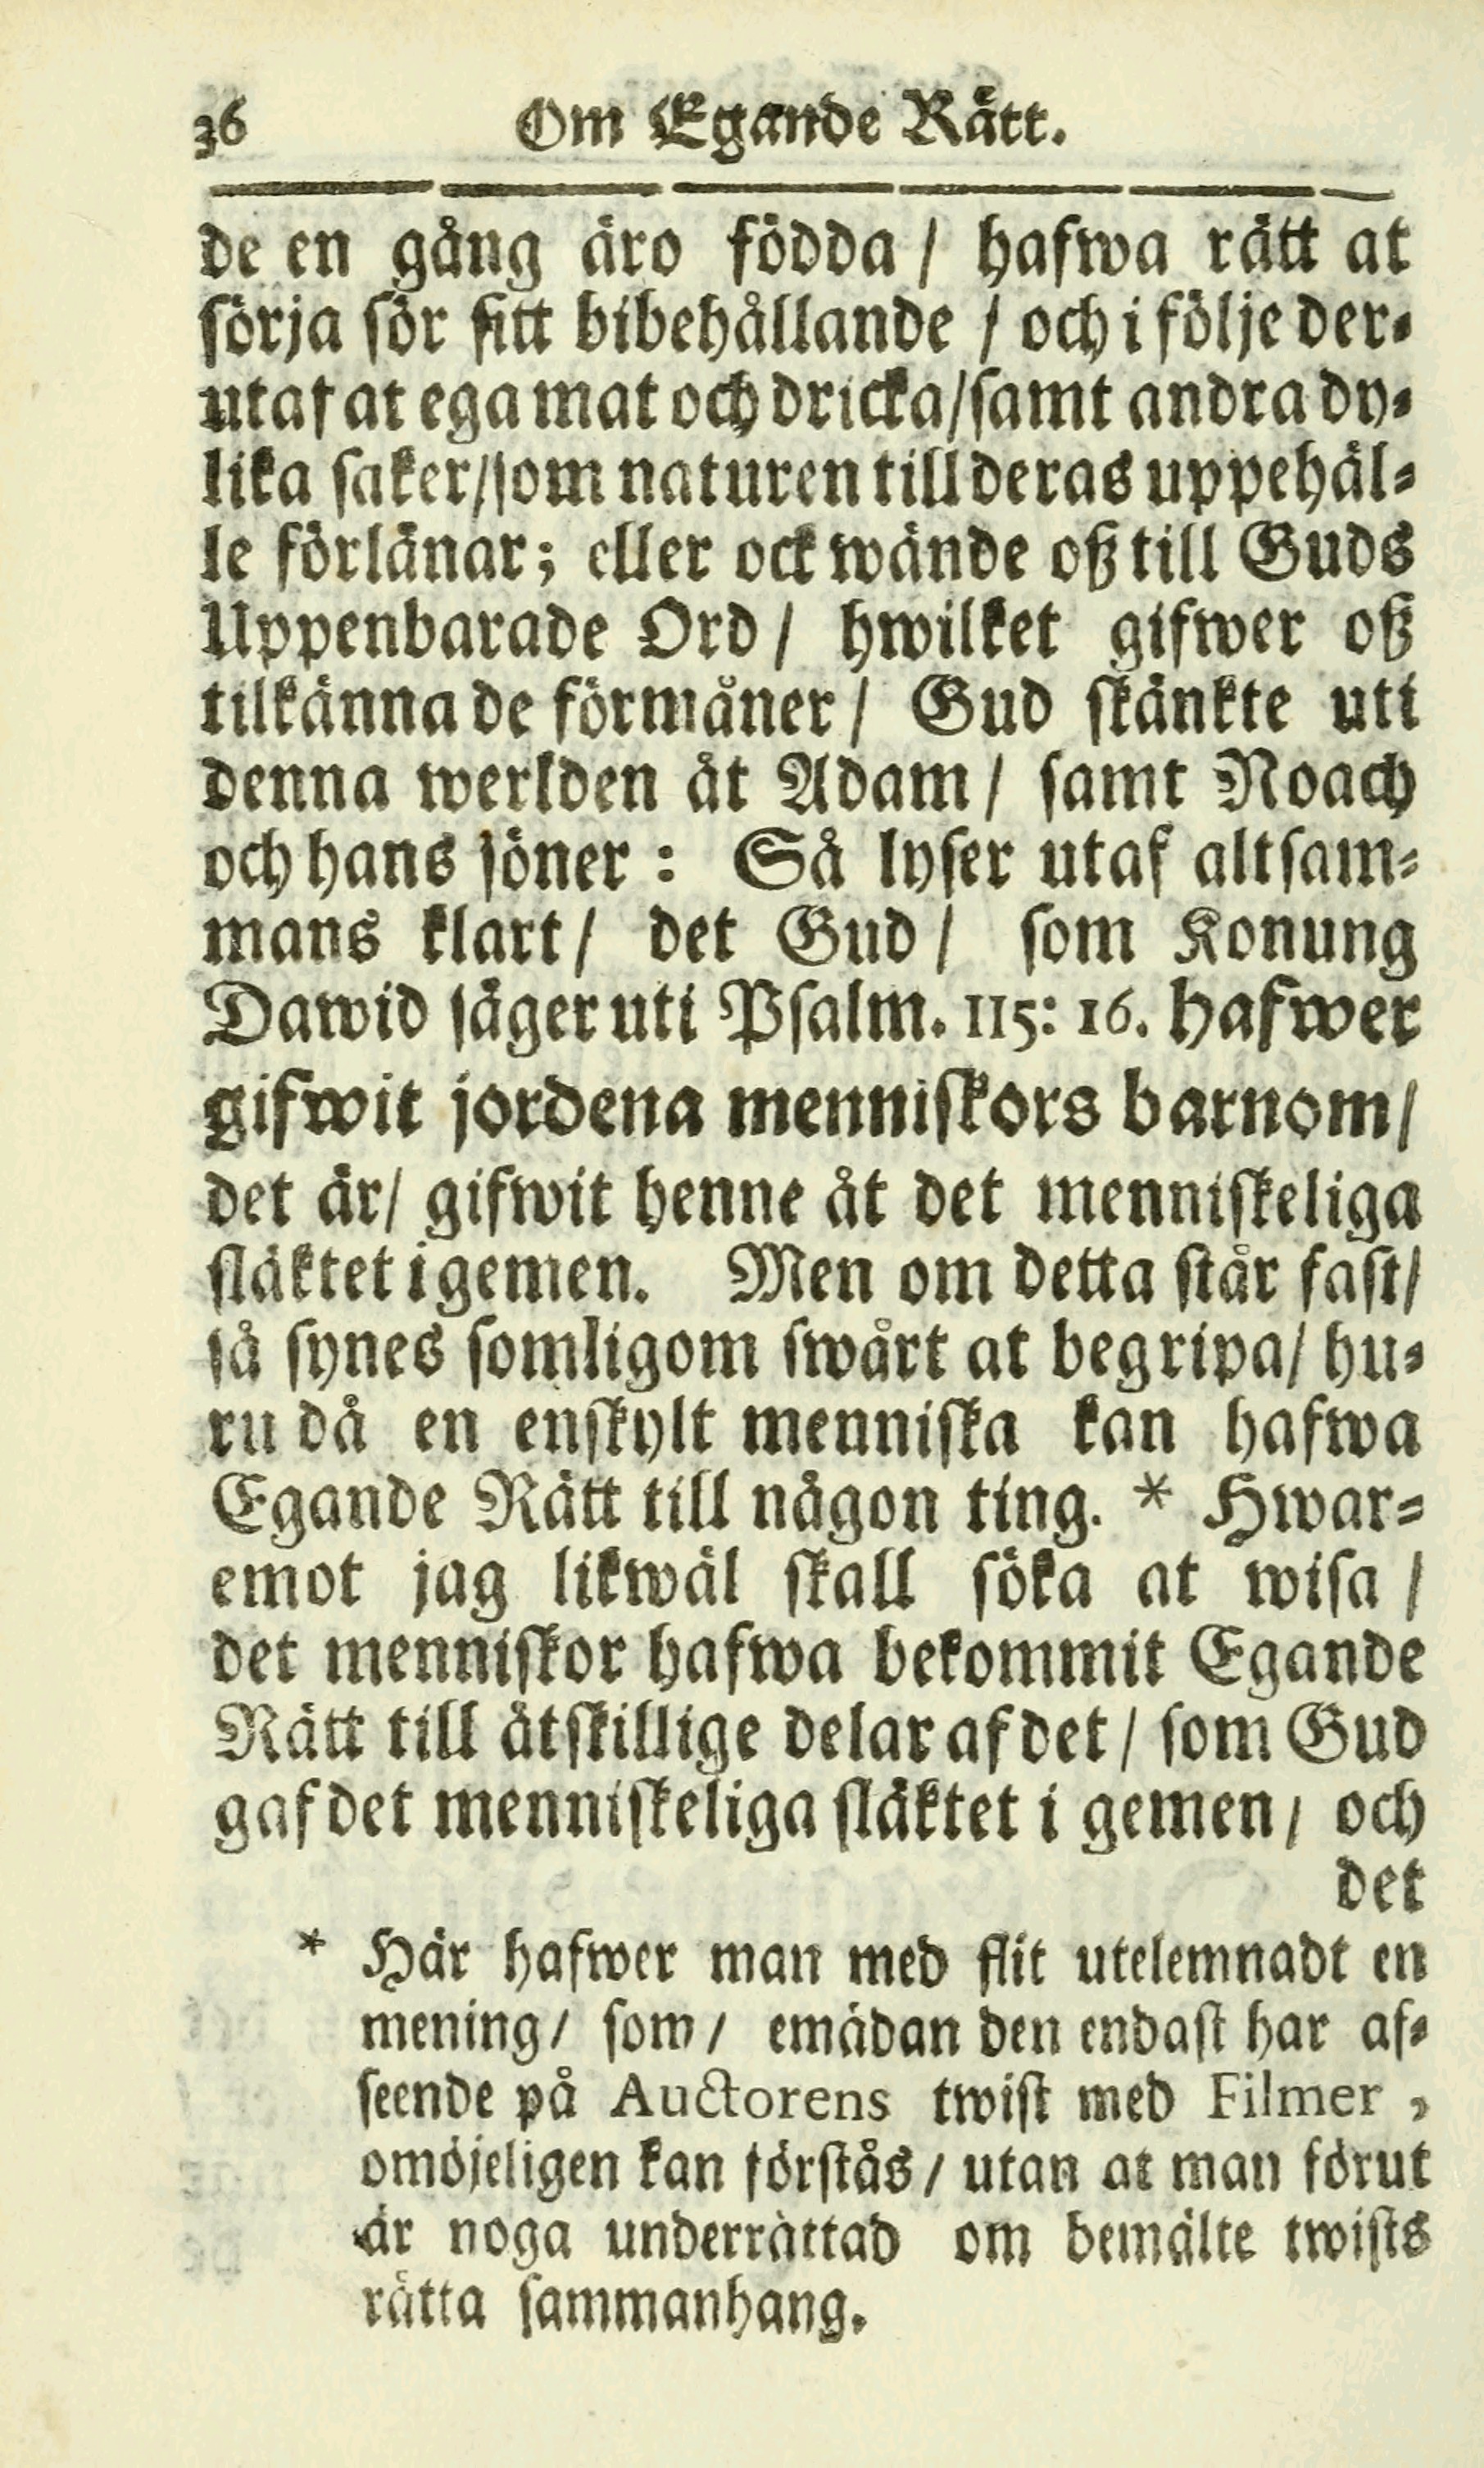 36 Om Egande Rätt.
de en gång äro födda / hafwa rätt at
sörja för sitt bibehållande / och i följe der-
utaf at ega mat och dricka / samt andra dy-
lika saker / som naturen till deras uppehäl-
le förlänar; eller ock wände oß till Guds
Uppenbarade Ord / hwilket gifwer oß
tilkänna de förmåner / Gud skänkte uti
denna werlden åt Adam / samt Noach
och hans söner : Så lyser utaf altsam-
mans klart / det Gud / som Konung
Dawid säger uti Psalm. 115: 16. hafwer
gifwit jordena menniskors barnom /
det är / gifwit henne åt det menniskeliga
släktet i gemen. Men om detta står fast /
så synes somligom swårt at begripa / hu-
ru då en enskylt menniska kan hafwa
Egande Rätt till någon ting. * Hwar-
emot jag likwäl skall söka at wisa /
det menniskor hafwa bekommit Egande
Rätt till åtskillige delar af det / som Gud
gaf det menniskeliga släktet i gemen / och
det
* Här hafwer man med flit utelemnadt en
mening / som / emädan den endast har af-
seende på Auctorens twist med Filmer ,
omöjeligen kan förstås / utan at man förut
är noga underrättad om bemälte twists
rätta sammanhang.